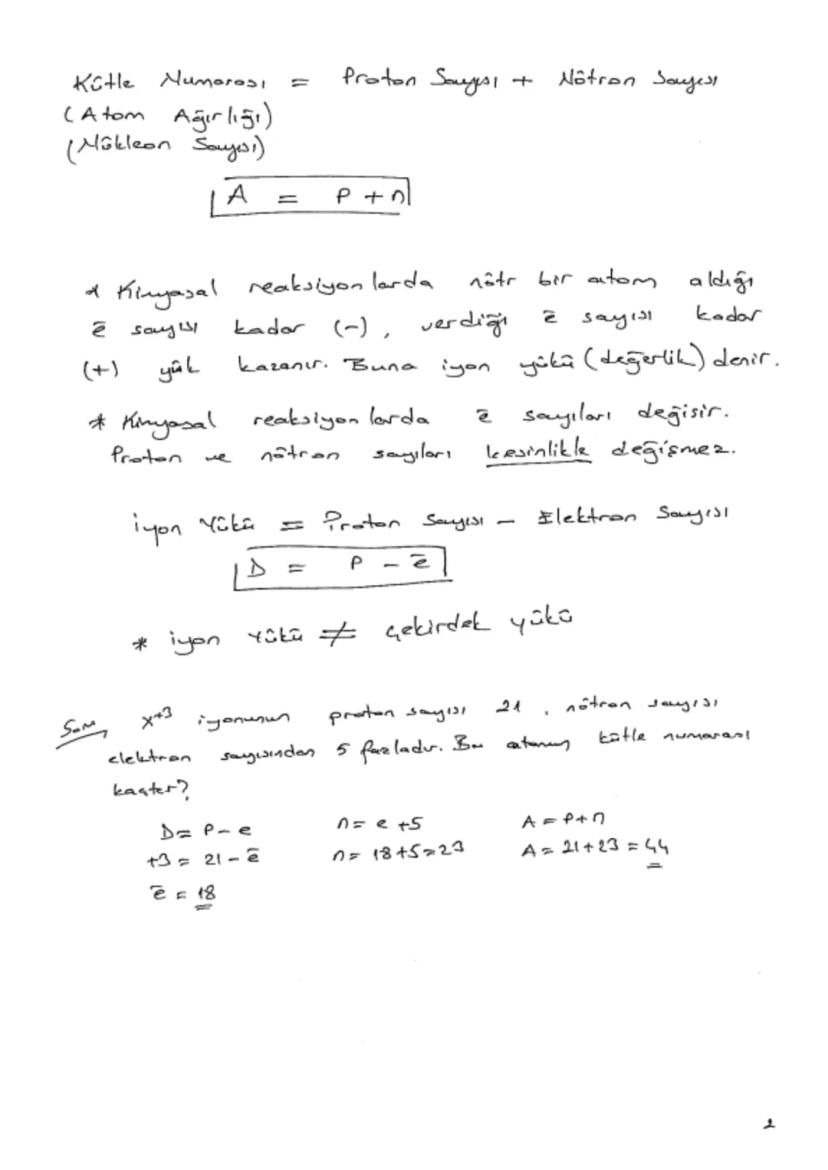 Kütle Numarası = Proton Sayısı + Nötron Sayısı
(Atom Ağırlığı)
(Nükleon Sayısı)
A = P + n
* Kimyasal reaksiyonlarda nötr bir atom aldığı
ē sayısı kadar (-), verdiği ē sayısı kadar
(+) yük kazanır. Buna iyon yükü (değerlik) denir.
* Kimyasal reaksiyonlarda ē sayıları değişir.
Proton ve nötron sayıları kesinlikle değişmez.
İyon Yükü = Proton Sayısı - Elektron Sayısı
D = P - ē
* iyon Yükü ≠ Çekirdek yükü
Soru, X+3 iyonunun proton sayısı 21, nötron sayısı
elektron sayısından 5 fazladır. Bu atomun kütle numarası
kaçtır?
D = P - e n = e + 5 A = P + n
+3 = 21 - ē n = 18 + 5 = 23 A = 21 + 23 = 44
ē = 18
2